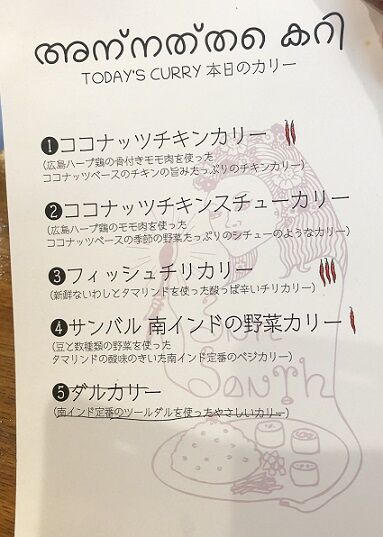 അന്നത്തെ കറി
TODAY'S CURRY 本日のカリー
❶ココナッツチキンカリー
(広島ハーブ鶏の骨付きモモ肉を使った
ココナッツベースのチキンの旨みたっぷりのチキンカリー)
❷ココナッツチキンスチューカリー
(広島ハーブ鶏のモモ肉を使った
ココナッツベースの季節の野菜たっぷりのシチューのようなカリー)
❸フィッシュチリカリー
(新鮮ないわしとタマリンドを使った酸っぱ辛いチリカリー)
❹サンバル 南インドの野菜カリー
(豆と数種類の野菜を使った
タマリンドの酸味のきいた南インド定番のベジカリー)
❺ダルカリー
(南インド定番のツールダルを使ったやさしいカリー)